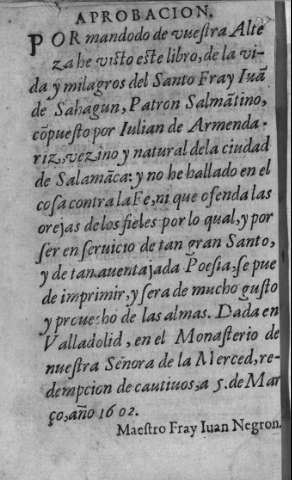 APROBACION.
POR mandodo de vuestra Alte
za he visto este libro, de la vi-
da y milagros del Santo Fray Iuã
de Sahagun, Patron Salmãtino,
cõpuesto por Iulian de Armenda-
riz, vezino y natural dela ciudad
de Salamãca: y no he hallado en el
cosa contra la Fe, ni que ofenda las
orejas de los fieles por lo qual, y por
ser en seruicio de tan gran Santo,
y de tan auentajada Poesia, se pue
de imprimir, y sera de mucho gusto
y prouecho de las almas. Dada en
Valladolid, en el Monasterio de
nuestra Señora de la Merced, re-
dempcion de cautiuos, a 5. de Mar
ço, año 1602.
Maestro Fray Iuan Negron.